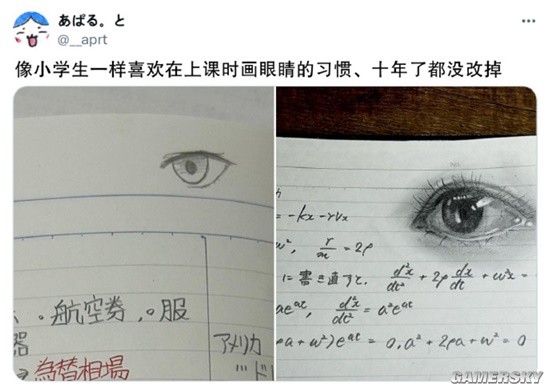 あぱる。と
@__aprt
像小学生一样喜欢在上课时画眼睛的习惯、十年了都没改掉
。航空券 。服
器
為替相場
アメリカ
"ド
= -kx - rvx
w², r/m = 2ρ
に書き直すと、 d²x/dt² + 2ρ dx/dt + w²x =
ae^{at}, d²x/dt² = a²e^{at}
ρa + w²)e^{at} = 0, a² + 2ρa + w² = 0
GAMERSKY